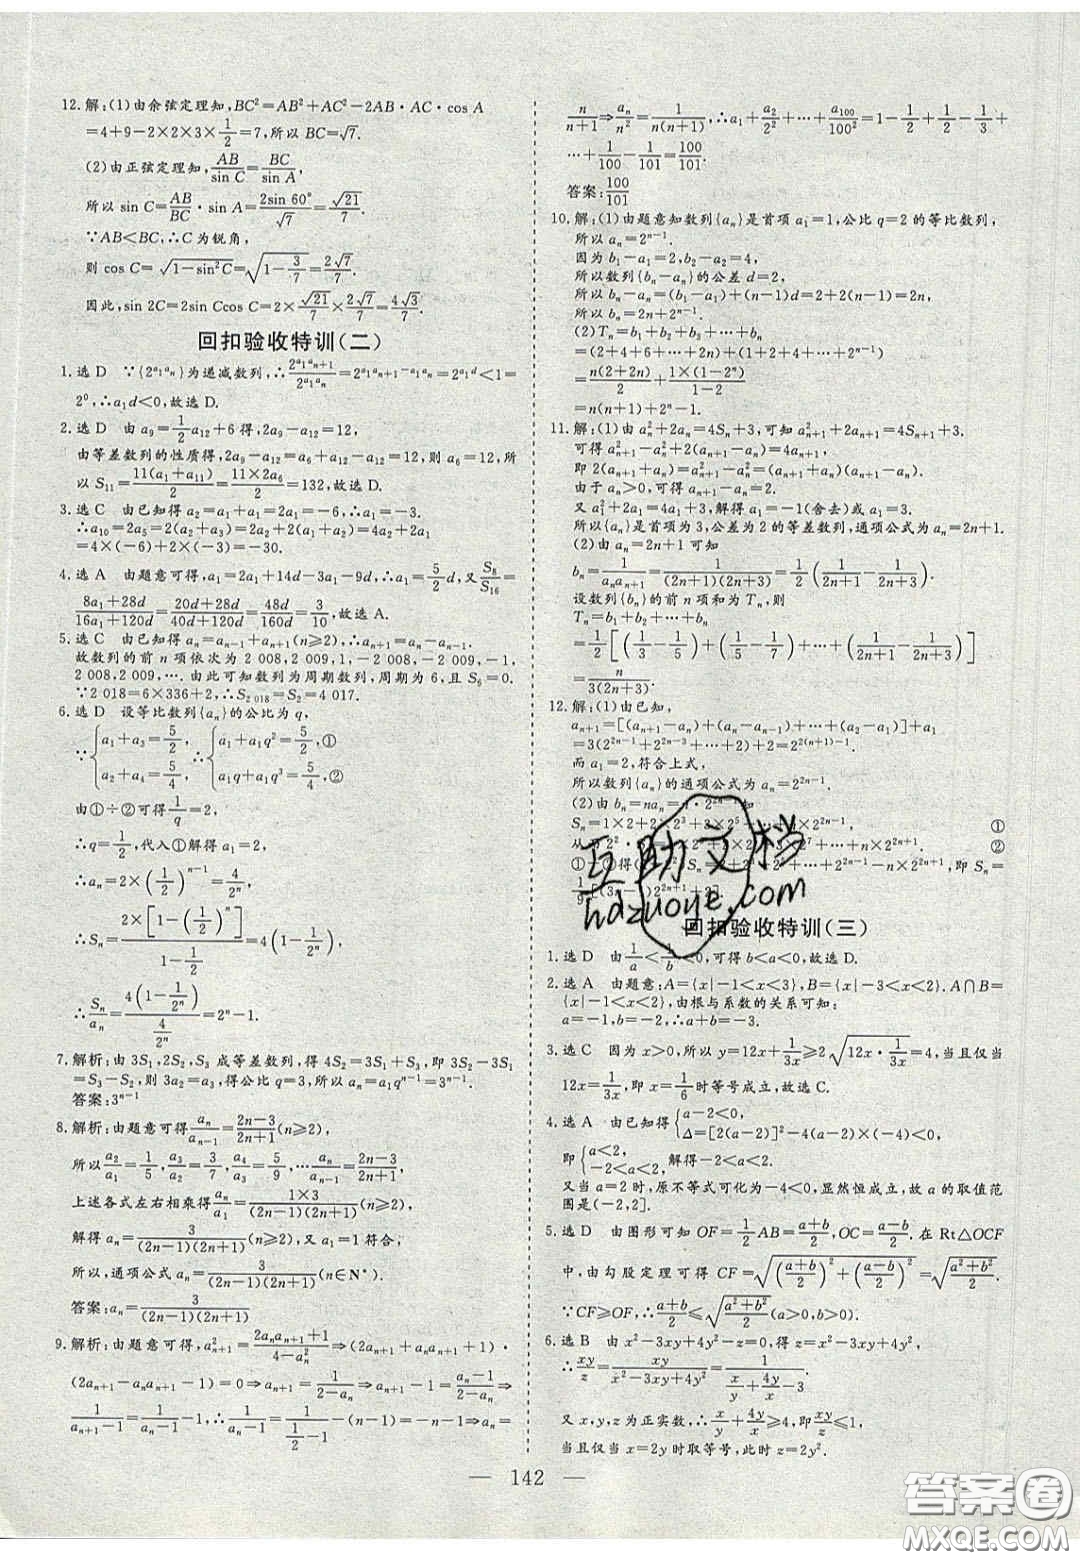 12.解:(1)由余弦定理知,BC²=AB²+AC²-2AB·AC·cos A
=4+9-2×2×3×1/2=7,所以 BC=√7.
(2)由正弦定理知,AB/sin C=BC/sin A,
所以 sin C=AB/BC·sin A=2sin 60°/√7=√21/7.
∵AB<BC,∴C为锐角,
则 cos C=√(1-sin²C)=√(1-3/7)=2√7/7.
因此,sin 2C=2sin Ccos C=2×√21/7×2√7/7=4√3/7.
回扣验收特训(二)
1.选 D ∵{2^(a₁aₙ)}为递减数列,∴2^(a₁aₙ₊₁)/2^(a₁aₙ)=2^(a₁aₙ₊₁-a₁aₙ)=2^(a₁d)<1=
2⁰,∴a₁d<0,故选 D.
2.选 D 由 a₉=1/2a₁₂+6 得,2a₉-a₁₂=12,
由等差数列的性质得,2a₉-a₁₂=a₆+a₁₂-a₁₂=12,则 a₆=12,所
以 S₁₁=11(a₁+a₁₁)/2=11×2a₆/2=132,故选 D.
3.选 C 由已知得 a₂=a₁+a₁=2a₁=-6,∴a₁=-3.
∴a₁₀=2a₅=2(a₂+a₃)=2a₂+2(a₁+a₂)=4a₂+2a₁
=4×(-6)+2×(-3)=-30.
4.选 A 由题意可得,a₁=2a₁+14d-3a₁-9d,∴a₁=5/2d,又S₈/S₁₆=
(8a₁+28d)/(16a₁+120d)=(20d+28d)/(40d+120d)=48d/160d=3/10,故选 A.
5.选 C 由已知得 aₙ=aₙ₋₁+aₙ₊₁(n≥2),∴aₙ₊₁=aₙ-aₙ₋₁.
故数列的前 n 项依次为 2 008,2 009,1,-2 008,-2 009,-1,
2 008,2 009.….由此可知数列为周期数列,周期为 6,且 S₆=0.
∵2 018=6×336+2,∴S₂ ₀₁₈=S₂=4 017.
6.选 D 设等比数列{aₙ}的公比为 q,
∵{a₁+a₃=5/2, a₂+a₄=5/4, ∴{a₁+a₁q²=5/2,① a₁q+a₁q³=5/4,②
由①÷②可得1/q=2,
∴q=1/2,代入①解得 a₁=2,
∴aₙ=2×(1/2)ⁿ⁻¹=4/2ⁿ,
∴Sₙ=2×[1-(1/2)ⁿ]/(1-1/2)=4(1-1/2ⁿ),
∴Sₙ/aₙ=4(1-1/2ⁿ)/(4/2ⁿ)=2ⁿ-1.
7.解析:由 3S₁,2S₂,S₃ 成等差数列,得 4S₂=3S₁+S₃,即 3S₂-3S₁
=S₃-S₂,则 3a₂=a₃,得公比 q=3,所以 aₙ=a₁qⁿ⁻¹=3ⁿ⁻¹.
答案:3ⁿ⁻¹
8.解析:由题意可得aₙ/aₙ₋₁=(2n-3)/(2n+1)(n≥2),
所以a₂/a₁=1/5,a₃/a₂=3/7,a₄/a₃=5/9,…aₙ/aₙ₋₁=(2n-3)/(2n+1),
上述各式左右相乘得aₙ/a₁=1×3/(2n-1)(2n+1)(n≥2),
解得 aₙ=3/(2n-1)(2n+1)(n≥2),又 a₁=1 符合,
所以,通项公式 aₙ=3/(2n-1)(2n+1)(n∈N*).
答案:aₙ=3/(2n-1)(2n+1)
9.解析:由题意可得,a²ₙ₊₁=(2aₙaₙ₊₁+1)/(4-a²ₙ)⇒(2aₙ₊₁-aₙaₙ₊₁+1)·
(2aₙ₊₁-aₙaₙ₊₁-1)=0⇒aₙ₊₁=1/(2-aₙ)⇒aₙ₊₁-1=(aₙ-1)/(2-aₙ)⇒
1/(aₙ₊₁-1)=1/(aₙ-1)-1⇒1/(aₙ-1)=1/(1/2-1)-(n-1)=-n-1⇒aₙ=
n/(n+1)⇒aₙ/n²=1/n(n+1),∴a₁+a₂/2²+…+a₁₀₀/100²=1-1/2+1/2-1/3+
…+1/100-1/101=100/101.
答案:100/101
10.解:(1)由题意知数列{aₙ}是首项 a₁=1,公比 q=2 的等比数列,
所以 aₙ=2ⁿ⁻¹.
因为 b₁-a₁=2,b₂-a₂=4,
所以数列{bₙ-aₙ}的公差 d=2,
所以 bₙ-aₙ=(b₁-a₁)+(n-1)d=2+2(n-1)=2n,
所以 bₙ=2n+2ⁿ⁻¹.
(2)Tₙ=b₁+b₂+b₃+…+bₙ
=(2+4+6+…+2n)+(1+2+4+…+2ⁿ⁻¹)
=n(2+2n)/2+1×(1-2ⁿ)/(1-2)
=n(n+1)+2ⁿ-1.
11.解:(1)由 a²ₙ+2aₙ=4Sₙ+3,可知 a²ₙ₊₁+2aₙ₊₁=4Sₙ₊₁+3.
可得 a²ₙ₊₁-a²ₙ+2(aₙ₊₁-aₙ)=4aₙ₊₁,
即 2(aₙ₊₁+aₙ)=a²ₙ₊₁-a²ₙ=(aₙ₊₁+aₙ)(aₙ₊₁-aₙ).
由于 aₙ>0,可得 aₙ₊₁-aₙ=2.
又 a₁²+2a₁=4a₁+3,解得 a₁=-1(舍去)或 a₁=3.
所以{aₙ}是首项为 3,公差为 2 的等差数列,通项公式为 aₙ=2n+1.
(2)由 aₙ=2n+1 可知
bₙ=1/aₙaₙ₊₁=1/(2n+1)(2n+3)=1/2(1/(2n+1)-1/(2n+3)).
设数列{bₙ}的前 n 项和为 Tₙ,则
Tₙ=b₁+b₂+…+bₙ
=1/2[(1/3-1/5)+(1/5-1/7)+…+(1/(2n+1)-1/(2n+3))]=
n/3(2n+3).
12.解:(1)由已知,
aₙ₊₁=[(aₙ₊₁-aₙ)+(aₙ-aₙ₋₁)+…+(a₂-a₁)]+a₁
=3(2²ⁿ⁻¹+2²ⁿ⁻³+…+2)+2=2²⁽ⁿ⁺¹⁾⁻¹.
而 a₁=2,符合上式,
所以数列{aₙ}的通项公式为 aₙ=2²ⁿ⁻¹.
(2)由 bₙ=naₙ=n·2²ⁿ⁻¹知
Sₙ=1×2+2×2³+3×2⁵+…+n×2²ⁿ⁻¹, ①
2²·Sₙ=1×2³+2×2⁵+3×2⁷+…+n×2²ⁿ⁺¹. ②
…+2²ⁿ⁻¹-n×2²ⁿ⁺¹,即 Sₙ=
1/9[(3n-1)2²ⁿ⁺¹+2].
互助文档
hdzuoye.com
回扣验收特训(三)
1.选 D 由1/a<1/b<0,可得 b<a<0,故选 D.
2.选 A 由题意:A={x|-1<x<3},B={x|-3<x<2}.A∩B=
{x|-1<x<2},由根与系数的关系可知:
a=-1,b=-2,∴a+b=-3.
3.选 C 因为 x>0,所以 y=12x+1/3x≥2√(12x·1/3x)=4,当且仅当
12x=1/3x,即 x=1/6时等号成立,故选 C.
4.选 A 由已知得{a-2<0, Δ=[2(a-2)]²-4(a-2)×(-4)<0,
即{a<2, -2<a<2, 解得-2<a<2.
又当 a=2 时,原不等式可化为-4<0,显然恒成立,故 a 的取值范
围是(-2,2].
5.选 D 由图形可知 OF=1/2AB=(a+b)/2,OC=(a-b)/2.在 Rt△OCF
中,由勾股定理可得 CF=√(((a+b)/2)²+((a-b)/2)²)=√((a²+b²)/2).
∵CF≥OF,∴(a+b)/2≤√((a²+b²)/2)(a>0,b>0).
6.选 B 由 x²-3xy+4y²-z=0,得 z=x²-3xy+4y²,
∴xy/z=xy/(x²-3xy+4y²)=1/(x/y+4y/x-3).
又 x,y,z 为正实数,∴x/y+4y/x≥4,即xy/z≤1,
当且仅当 x=2y 时取等号,此时 z=2y².
— 142 —
答案圈
MXQE.COM